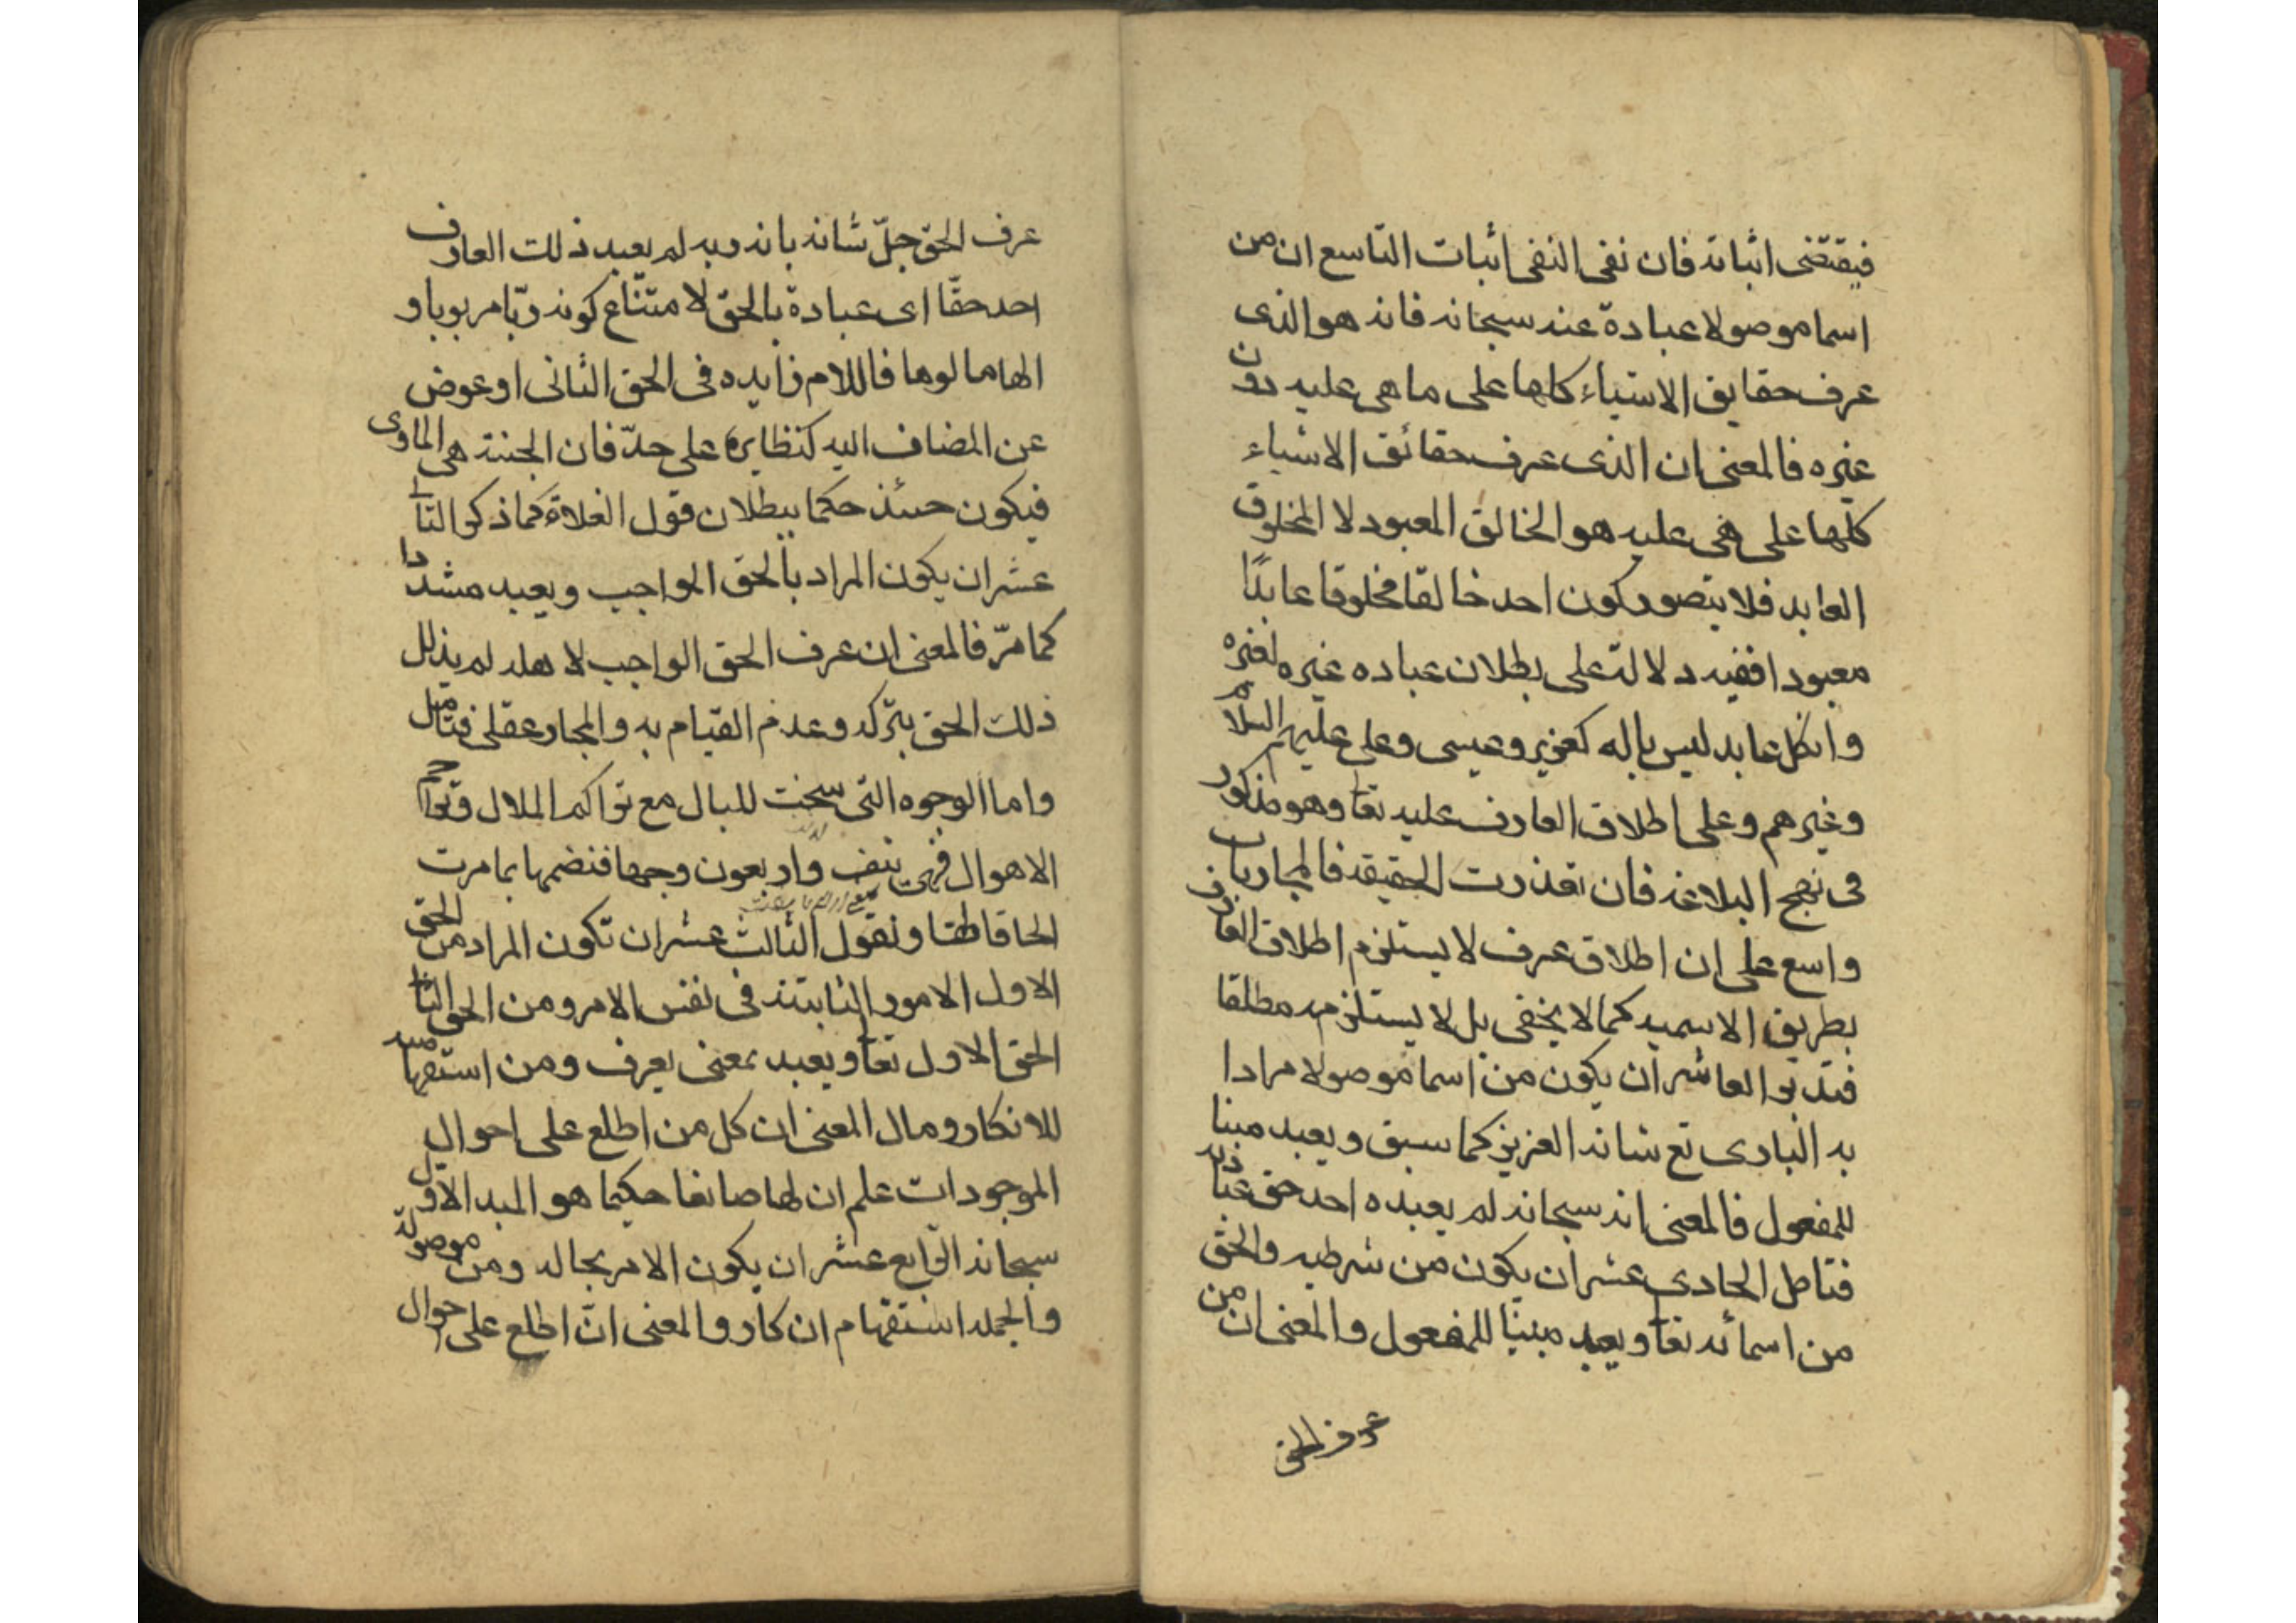 فيقتضى اثباته فان نفى النفى اثبات التاسع ان من
اسما موصولا عبادة عنه سبحانه فانه هو الذى
عرف حقايق الاشياء كلها على ما هى عليه دون
غيره فالمعنى ان الذى عرف حقائق الاشياء
كلها على هى عليه هو الخالق المعبود لا المخلوق
العابد فلا يتصور كون احد خالقا مخلوقا عابدًا
معبودا ففيه دلالة على بطلان عباده غيره لغيره
وانكل عابد ليس بإله كعزير وعيسى وعلى عليهم السلام
وغيرهم وعلى اطلاق العارف عليه تعا وهو مذكور
فى نهج البلاغه فان تعذرت الحقيقه فالمجاز باب
واسع على ان اطلاق عرف لا يستلزم اطلاق العارف
بطريق الاسميه كما لا يخفى بل لا يستلزمه مطلقا
فتدبر العاشر ان يكون من اسما موصولا مرادا
به البارى تع شانه العزيز كما سبق ويعبد مبنا
للمفعول فالمعنى انه سبحانه لم يعبده احد حق عبادته
فتامل الحادى عشر ان يكون من شرطيه والحق
من اسمائه تعا ويعبد مبنيا للمفعول والمعنى ان من
عرف الحق
عرف الحق جلّ شانه بانه ربه لم يعبد ذلك العارف
احد حقّا اى عبادة بالحق لامتناع كونه ربّا مربوبا و
الها مالوها فاللام زايده فى الحق الثانى او عوض
عن المضاف اليه كنظايره على حدّ فان الجنة هى الماوى
فيكون حسئذ حكما ببطلان قول الغلاة كما ذكر الثانى
عشر ان يكون المراد بالحق الواجب ويعبد مشددا
كما مرّ فالمعنى ان عرف الحق الواجب لاهله لم يذلل
ذلك الحق بتركه وعدم القيام به والمجاز عقلى فتامل
واما الوجوه التى سنحت للبال مع تراكم الملال وتواتر
الاهوال فهى نيف واربعون وجها فنضمها بما مرت
الحاقا لها ونقول الثالث عشر ان تكون المراد من الحق
الاول الامور الثابتة فى نفس الامر ومن الحق الثانى
الحق الاول تعا ويعبد بمعنى يعرف ومن استفهاميه
للانكار ومال المعنى ان كل من اطلع على احوال
الموجودات علم ان لها صانعا حكيما هو المبد الاول
سبحانه الرابع عشر ان يكون الامر بحاله ومن موصولة
والجمله استفهام انكار والمعنى انّ اطلع على احوال